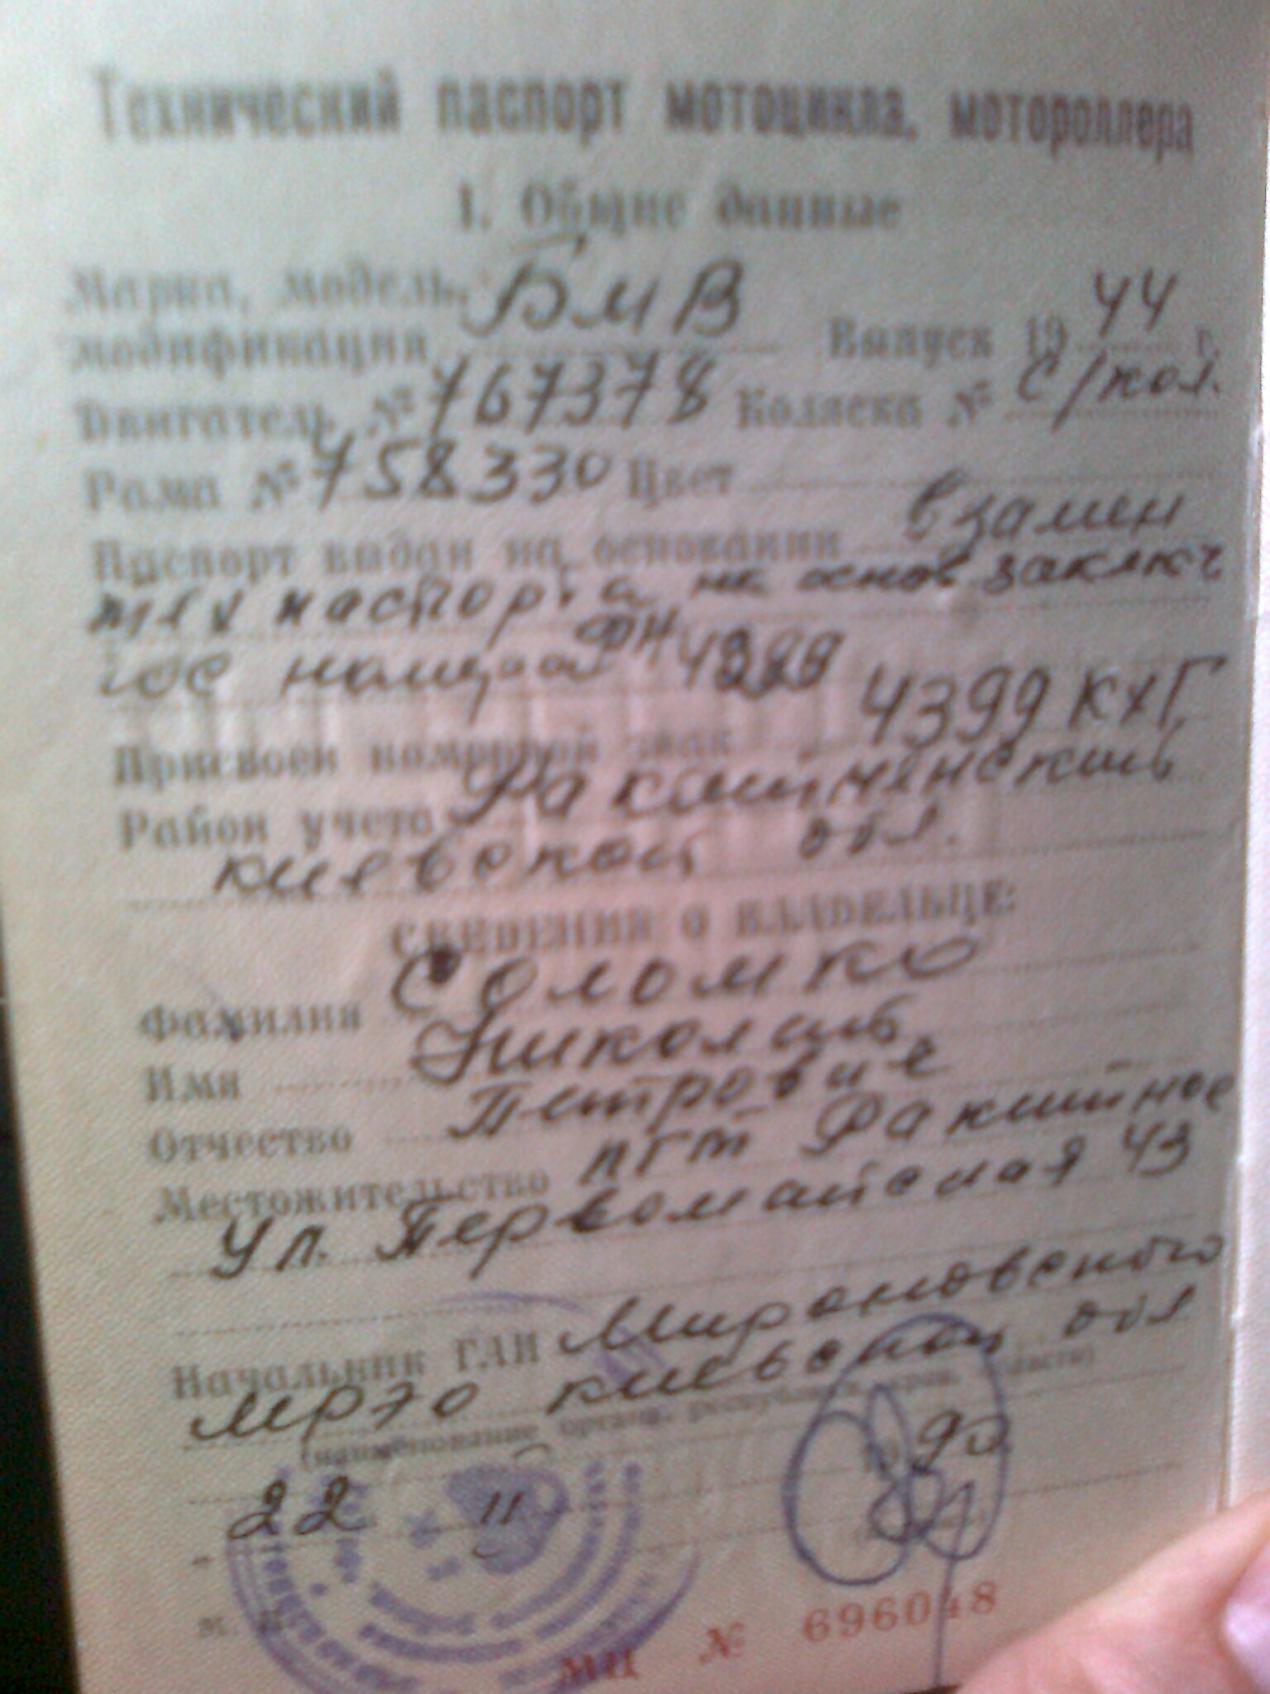 Технический паспорт мотоцикла, мотороллера
1. Общие данные
Марка, модель, БМВ
модификация Выпуск 19 44 г.
Двигатель № 767378 Коляска № с/кол.
Рама № 758330 Цвет
Паспорт выдан на основании взамен
тех паспорта на основ. заключ
гос номера ФН
Присвоен номерной знак 4399 КХГ
Район учета Ракитнянский
киевской обл.
СВЕДЕНИЯ О ВЛАДЕЛЬЦЕ:
Фамилия Соломко
Имя Николай
Отчество Петрович
Местожительство пгт Ракитное
ул. Первомайская 43
Начальник ГАИ Мироновского
мрэо киевской обл
(наименование органа, республики, края, области)
22 11 1990
м. п.
МЦ № 696048